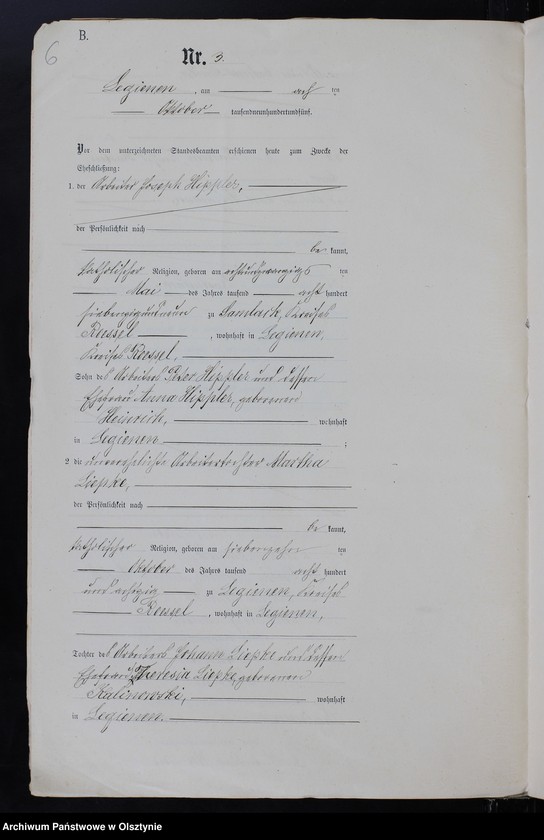 B.
6
Nr. 3.
Legienen, am acht ten
Oktober tausendneunhundertundfünf.
Vor dem unterzeichneten Standesbeamten erschienen heute zum Zwecke der
Eheschließung:
1. der Arbeiter Joseph Hippler,
der Persönlichkeit nach
be kannt,
katholischer Religion, geboren am achtundzwanzigs ten
Mai des Jahres tausend acht hundert
siebenzigundneun zu Samlack, Kreises
Roessel, wohnhaft in Legienen,
Kreises Roessel,
Sohn des Arbeiters Peter Hippler und dessen
Ehefrau Anna Hippler, geborenen
Heinrich, wohnhaft
in Legienen ;
2 die unverehelichte Arbeitertochter Martha
Liepke,
der Persönlichkeit nach
be kannt,
katholischer Religion, geboren am siebenzehn ten
Oktober des Jahres tausend acht hundert
und achtzig zu Legienen, Kreises
Roessel, wohnhaft in Legienen,
Tochter des Arbeiters Johann Liepke und dessen
Ehefrau Theresia Liepke, geborenen
Kalinowski, wohnhaft
in Legienen.
Archiwum Państwowe w Olsztynie